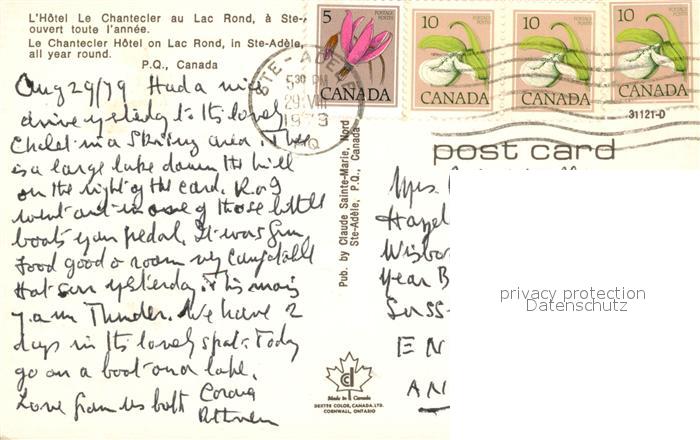 L'Hôtel Le Chantecler au Lac Rond, à Ste-
ouvert toute l'année.
Le Chantecler Hôtel on Lac Rond, in Ste-Adèle,
all year round.
P.Q., Canada
5 POSTAGE POSTES CANADA
10 POSTAGE POSTES CANADA
10 POSTAGE POSTES CANADA
10 POSTAGE POSTES CANADA
STE-ADELE
5 30 PM
29 VIII
1979
PQ
31121-D
post card
Aug 29/79 Had a nice
drive yesterday to this lovely
Chalet in a Skiing area. There
is a large lake down the hill
on the right of the card. R and
went out in one of those little
boats you pedal. It was fun
Food good & room very comfortable
Hot sun yesterday. This morning
7 a.m Thunder. We have 2
days in this lovely spot. Today
go on a boat on a lake.
Love from us both
Pub. by Claude Sainte-Marie, Nord
Ste-Adèle, P.Q., Canada
Mrs
Hazel
Year B
Suss
EN
AN
privacy protection
Datenschutz
Made in Canada
DEXTER COLOR, CANADA, LTD.
CORNWALL, ONTARIO